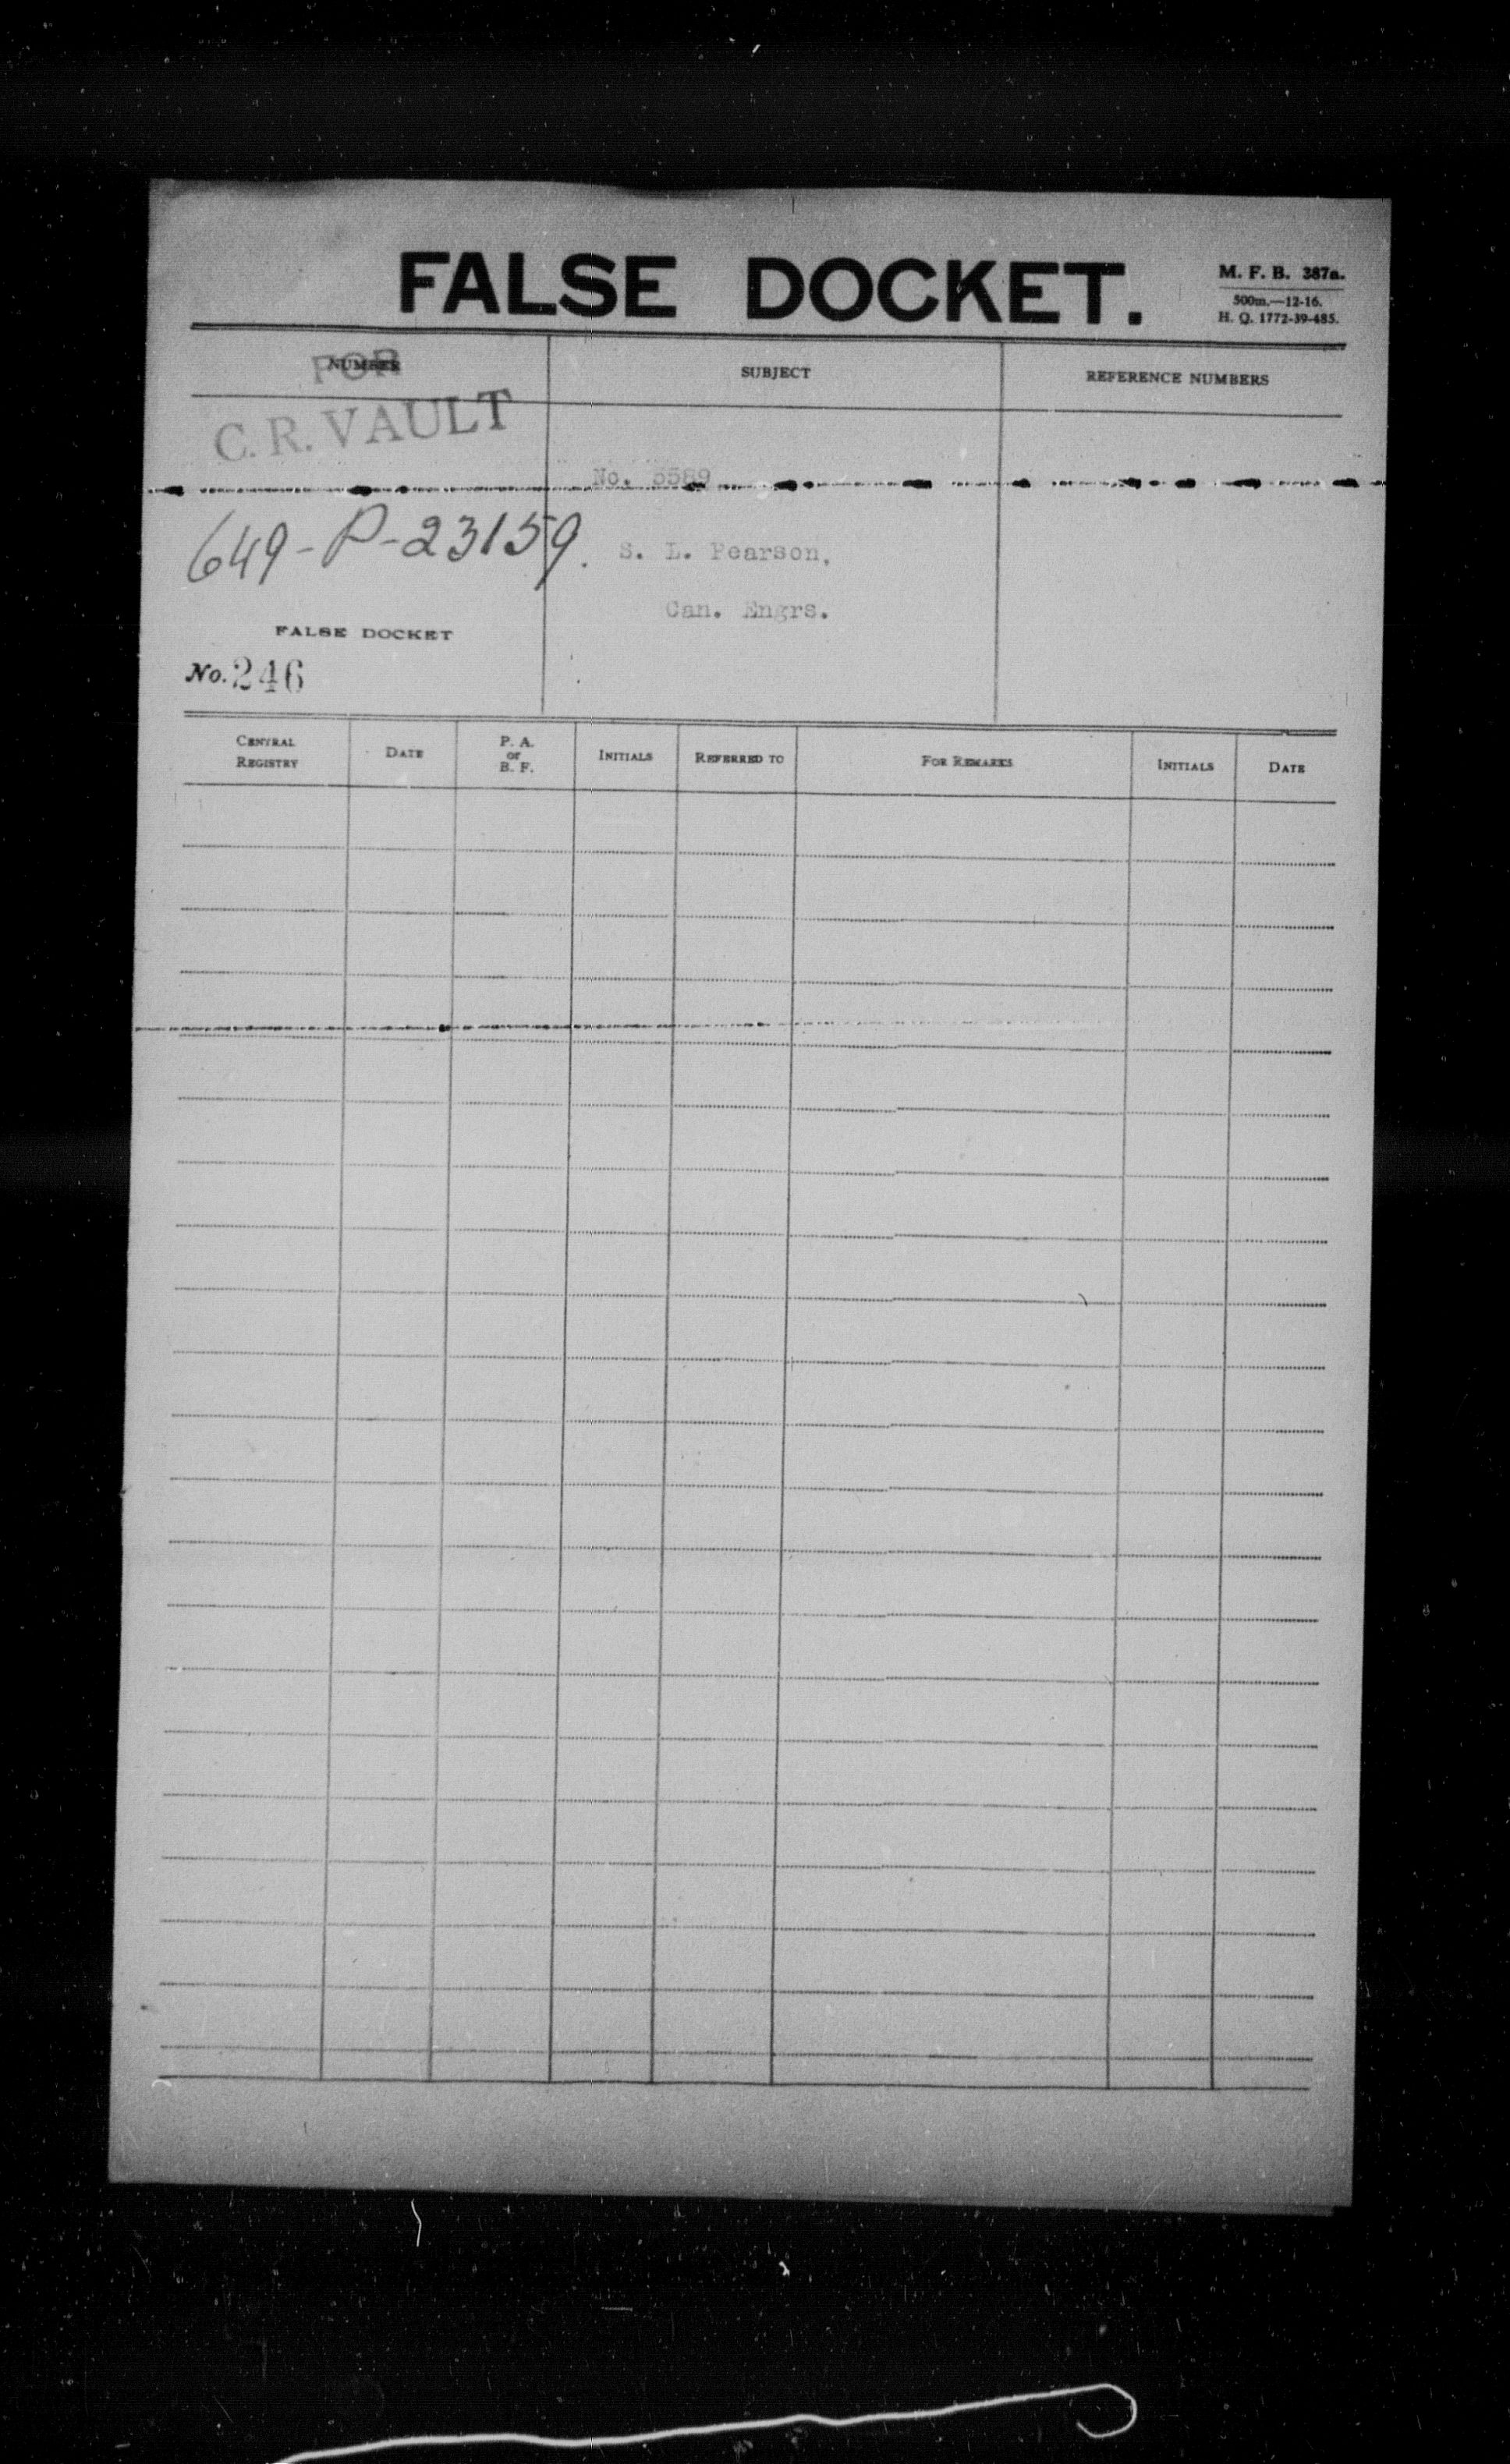 FALSE DOCKET.
M. F. B. 387a.
500m.—12-16.
H. Q. 1772-39-485.
NUMBER
FOR
SUBJECT
REFERENCE NUMBERS
C. R. VAULT
No. 5589
649-P-23159.
S. L. Pearson,
Can. Engrs.
FALSE DOCKET
No. 246
CENTRAL REGISTRY
DATE
P. A. or B. F.
INITIALS
REFERRED TO
FOR REMARKS
INITIALS
DATE